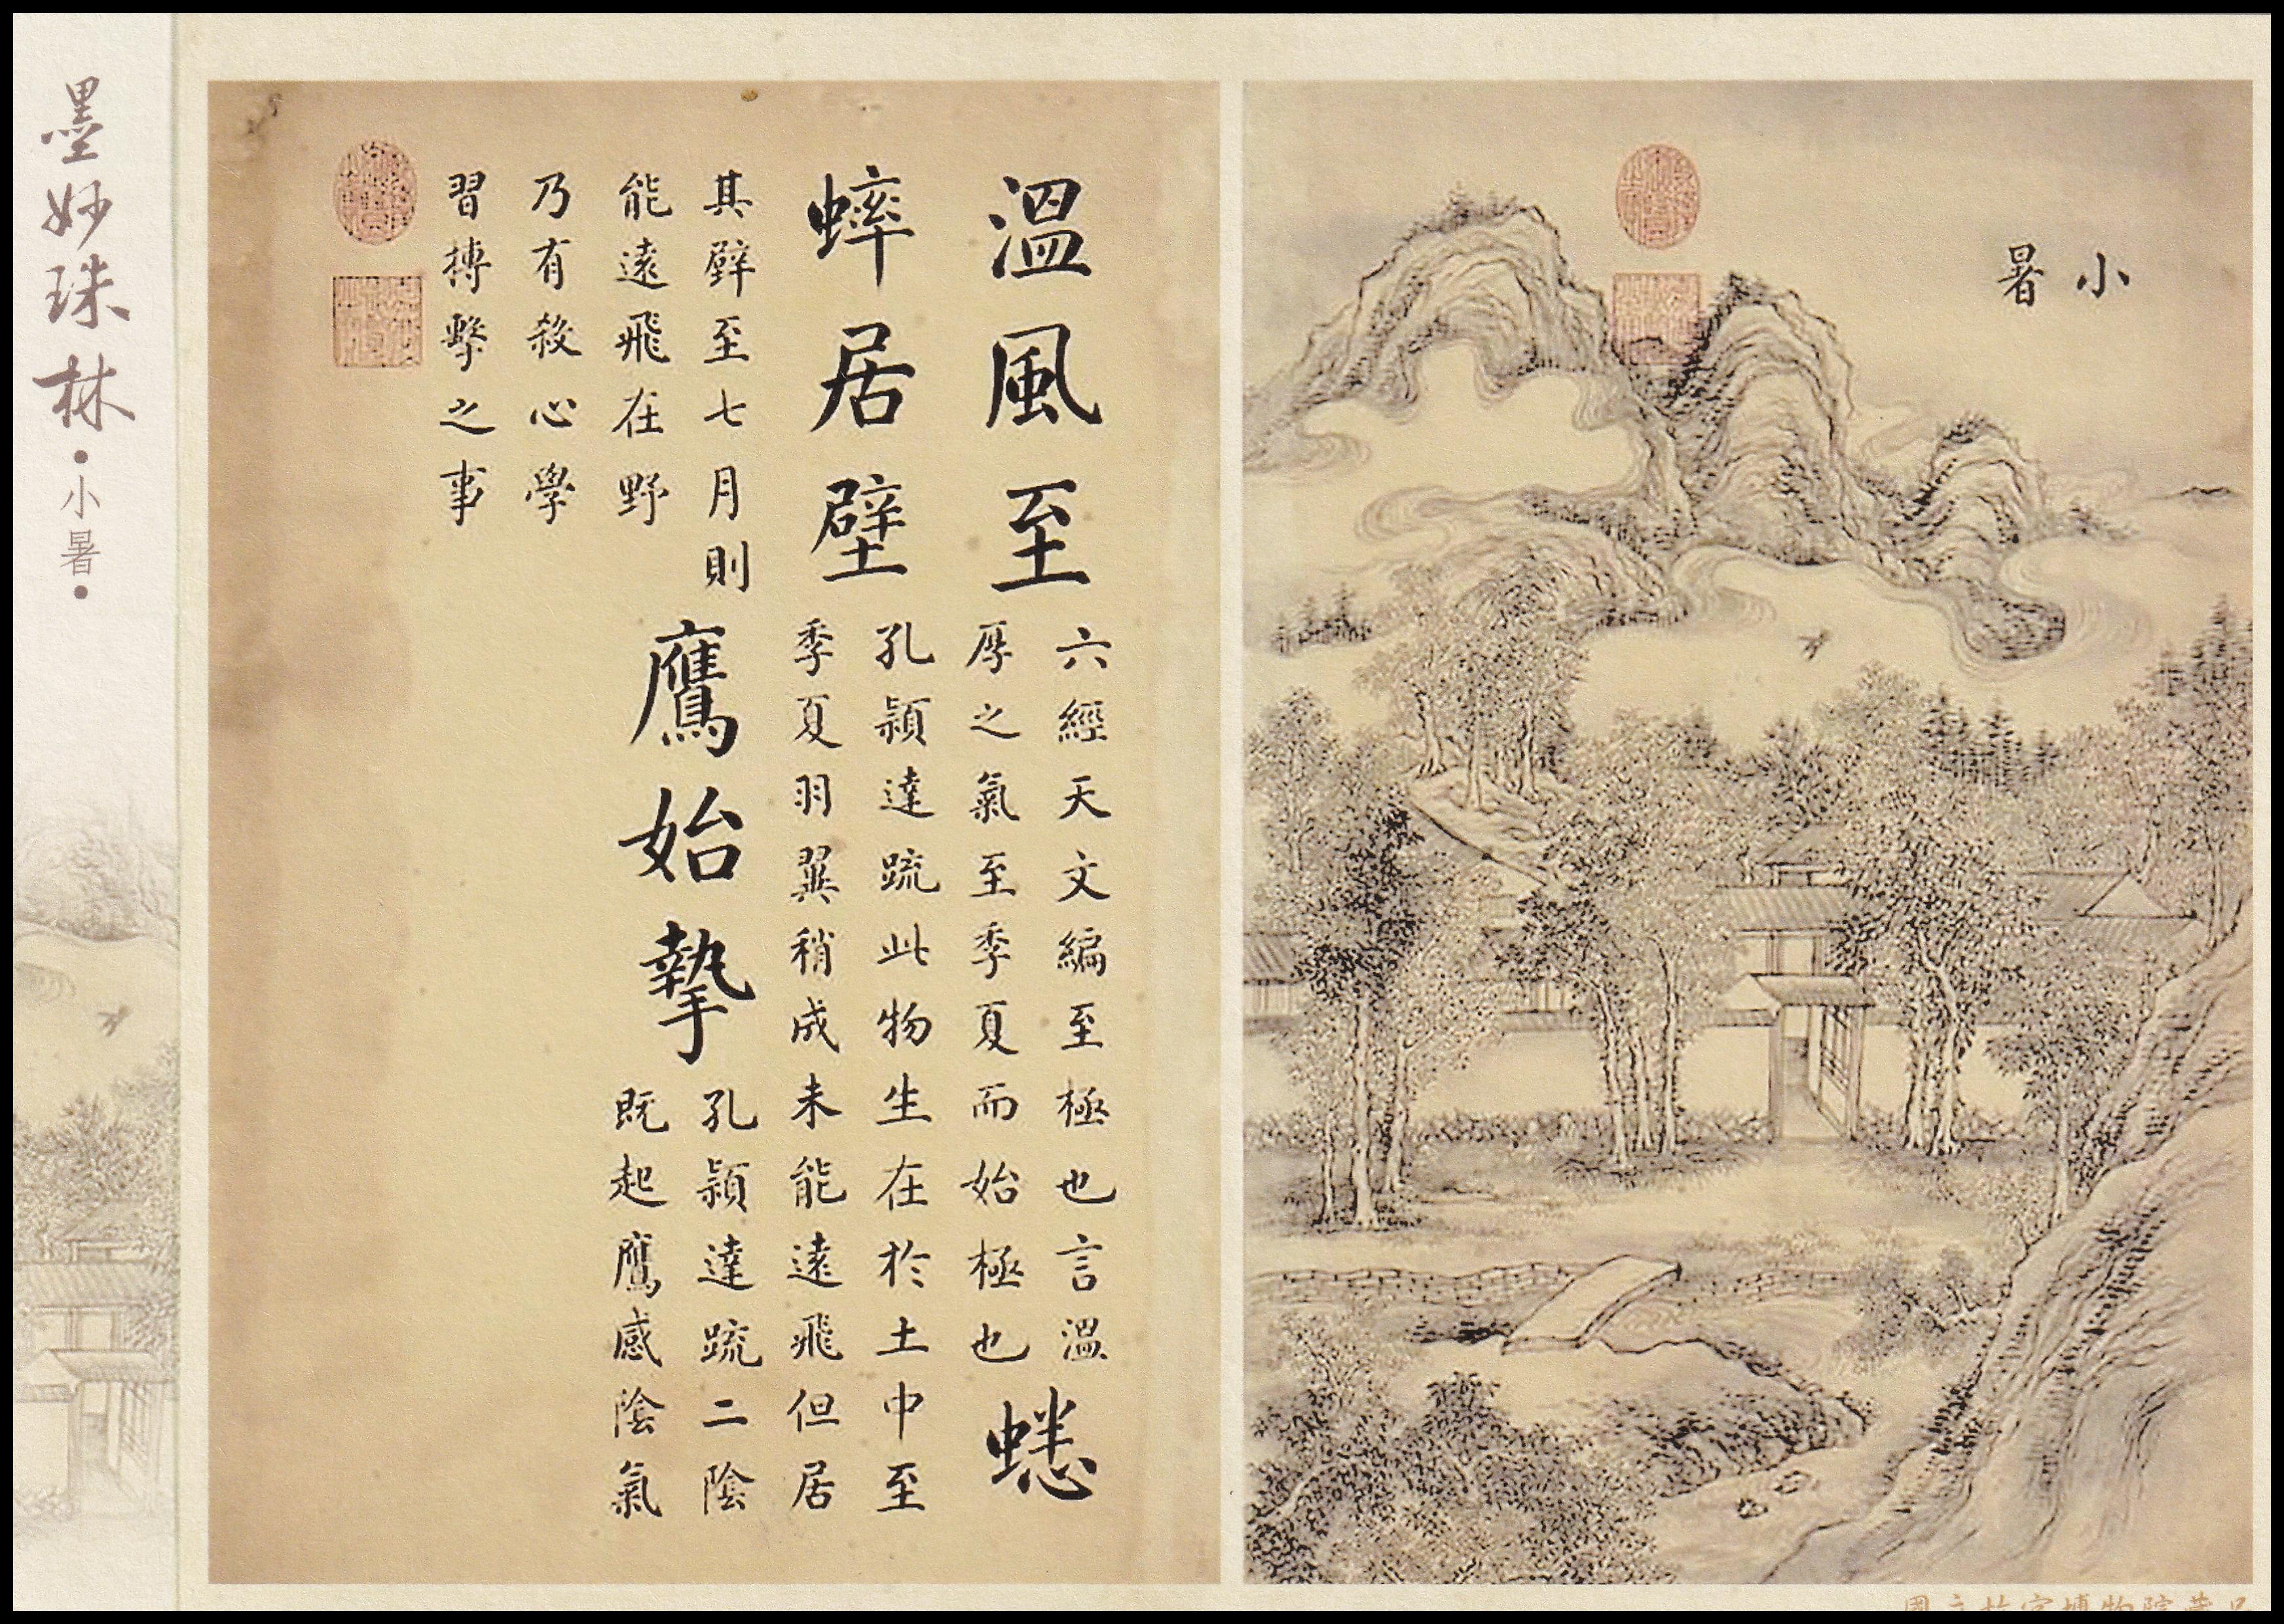 小暑
溫風至
六經天文編至極也言溫
厚之氣至季夏而始極也
蟋
蟀居壁
孔穎達疏此物生在於土中至
季夏羽翼稍成未能遠飛但居
其壁至七月則
能遠飛在野
鷹始摯
孔穎達疏二陰
既起鷹感陰氣
乃有殺心學
習搏擊之事
墨妙珠林•小暑•
國立故宮博物院藏品